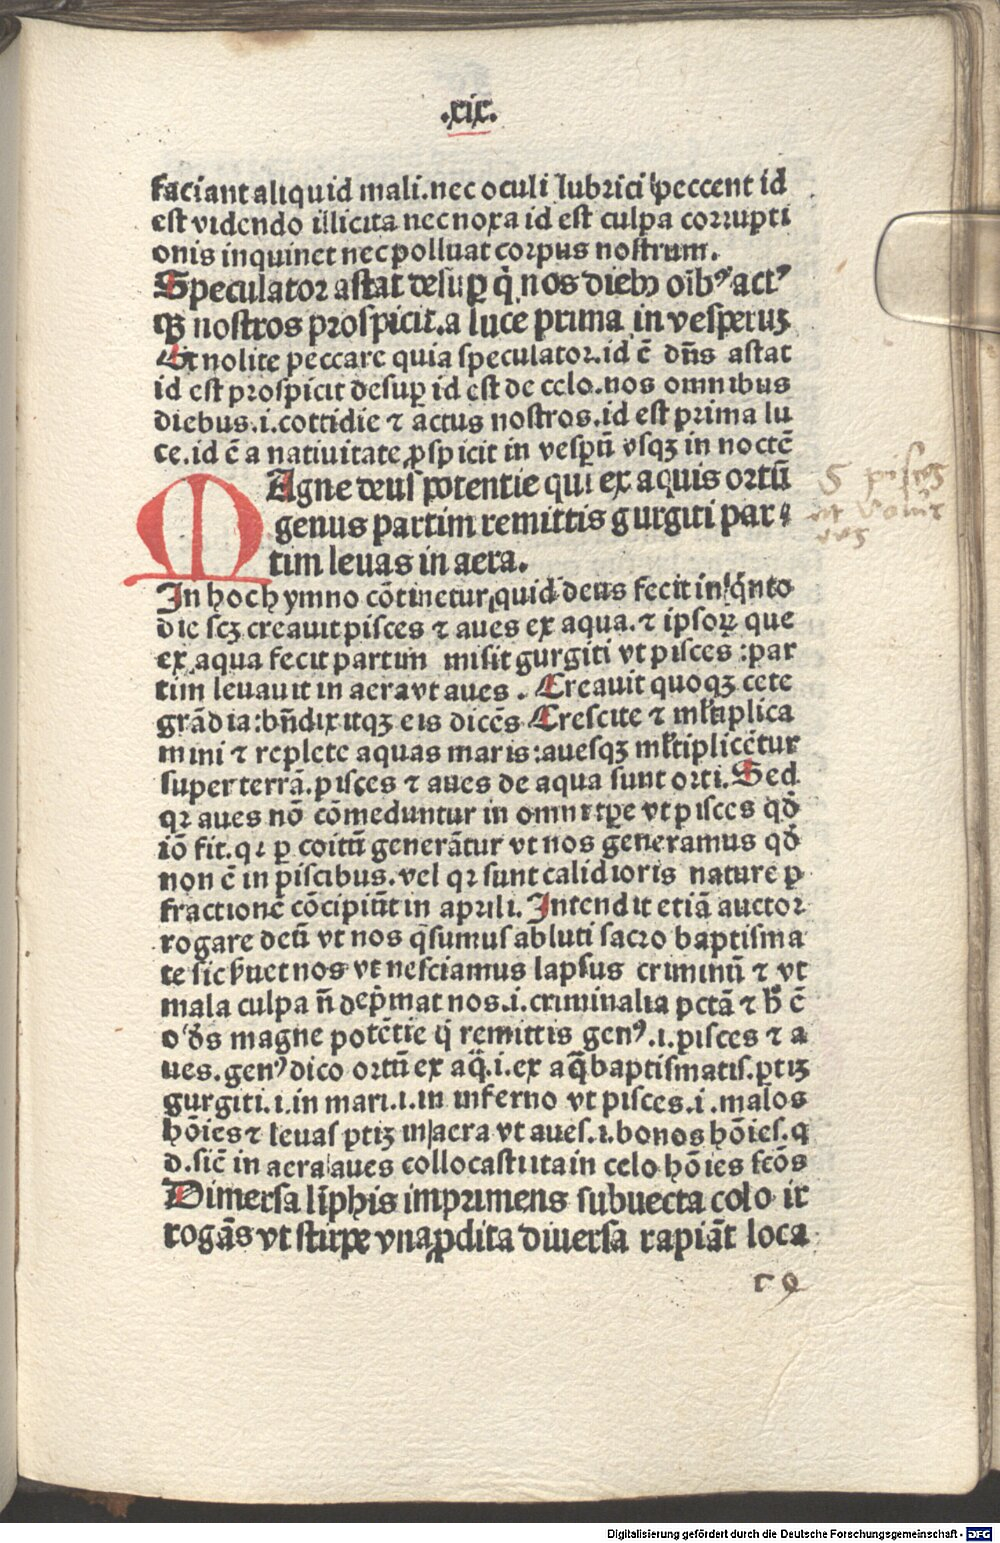 .xix.
faciant aliquid mali. nec oculi lubrici peccent id
est videndo illicita nec noxa id est culpa corrupti
onis inquinet nec polluat corpus nostrum.
Speculator astat desuꝑ q̇ nos dieb⁹ oīb⁹ act⁹
qꝫ nostros prospicit. a luce prima in vesperuꝫ
Et nolite peccare quia speculator. id ē dn̄s astat
id est prospicit desuꝑ id est de celo. nos omnibus
diebus .i. cottidie ⁊ actus nostros. id est prima lu
ce. id ē a natiuitate ꝓspicit in vesꝑū vsqꝫ in noctē
MAgne deus potentie qui ex aquis ortū
genus partim remittis gurgiti par⸗
tim leuas in aera.
In hoc hymno cōtinetur quid deus fecit in q̇nto
die scꝫ creauit pisces ⁊ aues ex aqua. ⁊ ipsoꝝ que
ex aqua fecit partim misit gurgiti vt pisces : par
tim leuauit in aera vt aues . Creauit quoqꝫ cete
grādia : bn̄dixitqꝫ eis dicēs Crescite ⁊ ml̄tiplica
mini ⁊ replete aquas maris : auesqꝫ ml̄tiplicētur
super terrā. pisces ⁊ aues de aqua sunt orti. Sed
qꝛ aues nō cōmeduntur in omni tꝑe vt pisces qđ
iō fit. qꝛ ꝑ coitū generātur vt nos generamus qđ
non ē in piscibus. vel qꝛ sunt calidioris nature ꝑ
fractionē cōcipiūt in aprili. Intendit etiā auctor
rogare deū vt nos q̇ sumus abluti sacro baptisma
te sic ẜuet nos vt nesciamus lapsus criminū ⁊ vt
mala culpa n̄ dep̄mat nos .i. criminalia pctā ⁊ h̄ ē
o đs magne potētie q̇ remittis gen⁹ .i. pisces ⁊ a
ues. gen⁹ dico ortū ex aq̄ .i. ex aq̄ baptismatis. ꝑtiꝫ
gurgiti .i. in mari .i. in inferno vt pisces .i. malos
hōies ⁊ leuas ꝑtiꝫ in aera vt aues .i. bonos hōies. q
d. sic̄ in aera aues collocasti ita in celo hōies scōs
Dimersa limphis imprimens subuecta celo ir
rogās vt stirpe vna ꝓdita diuersa rapiāt loca
5 pisces
et